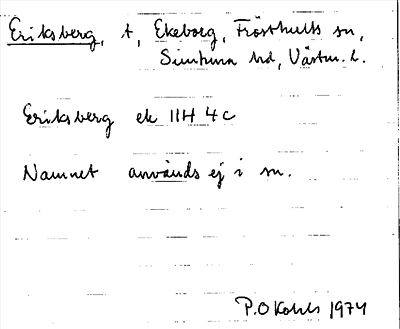 Eriksberg, t, Ekeborg, Frösthults sn,
Simtuna hd, Västm. l.
Eriksberg ek 11H 4c
Namnet används ej i sn.
P.O 1974